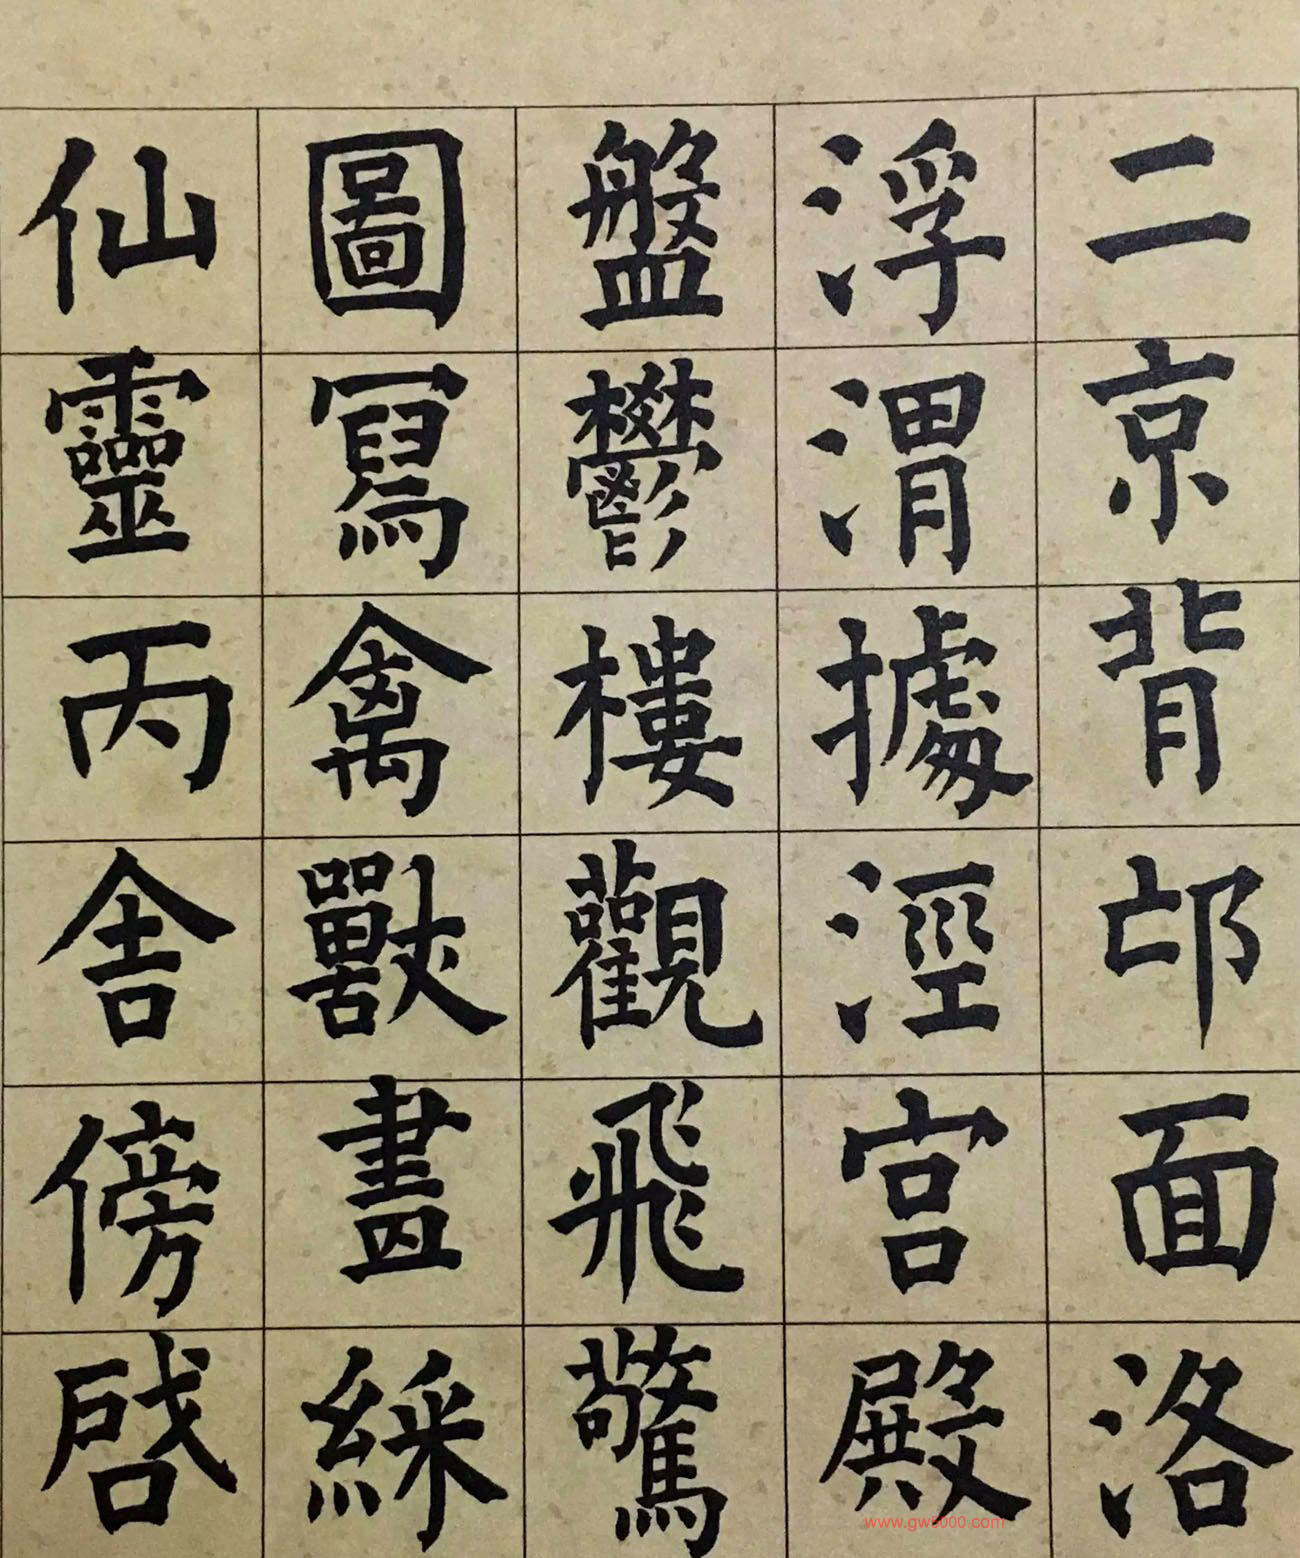 二京背邙面洛
浮渭據涇宮殿
盤鬱樓觀飛驚
圖寫禽獸畫綵
仙靈丙舍傍啓
www.gw5000.com